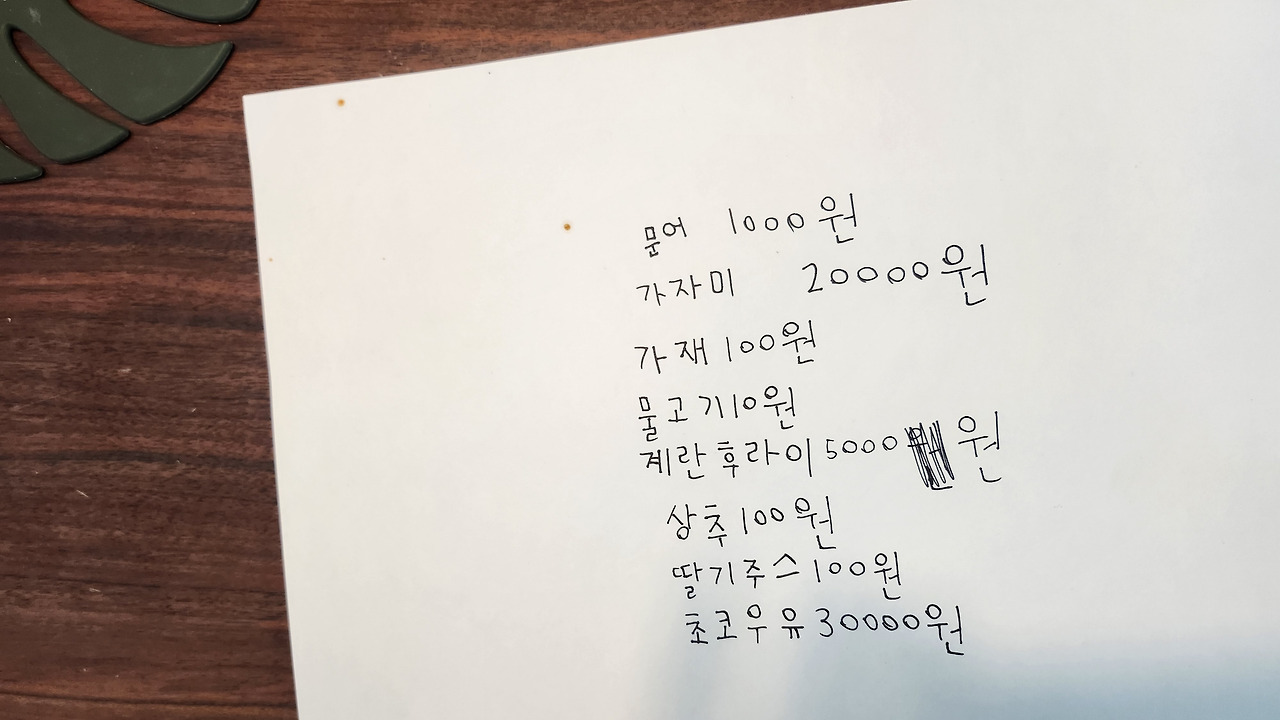 문어 1000원
가자미 20000원
가재 100원
물고기 10원
계란후라이 5000원
상추 100원
딸기주스 100원
초코우유 30000원